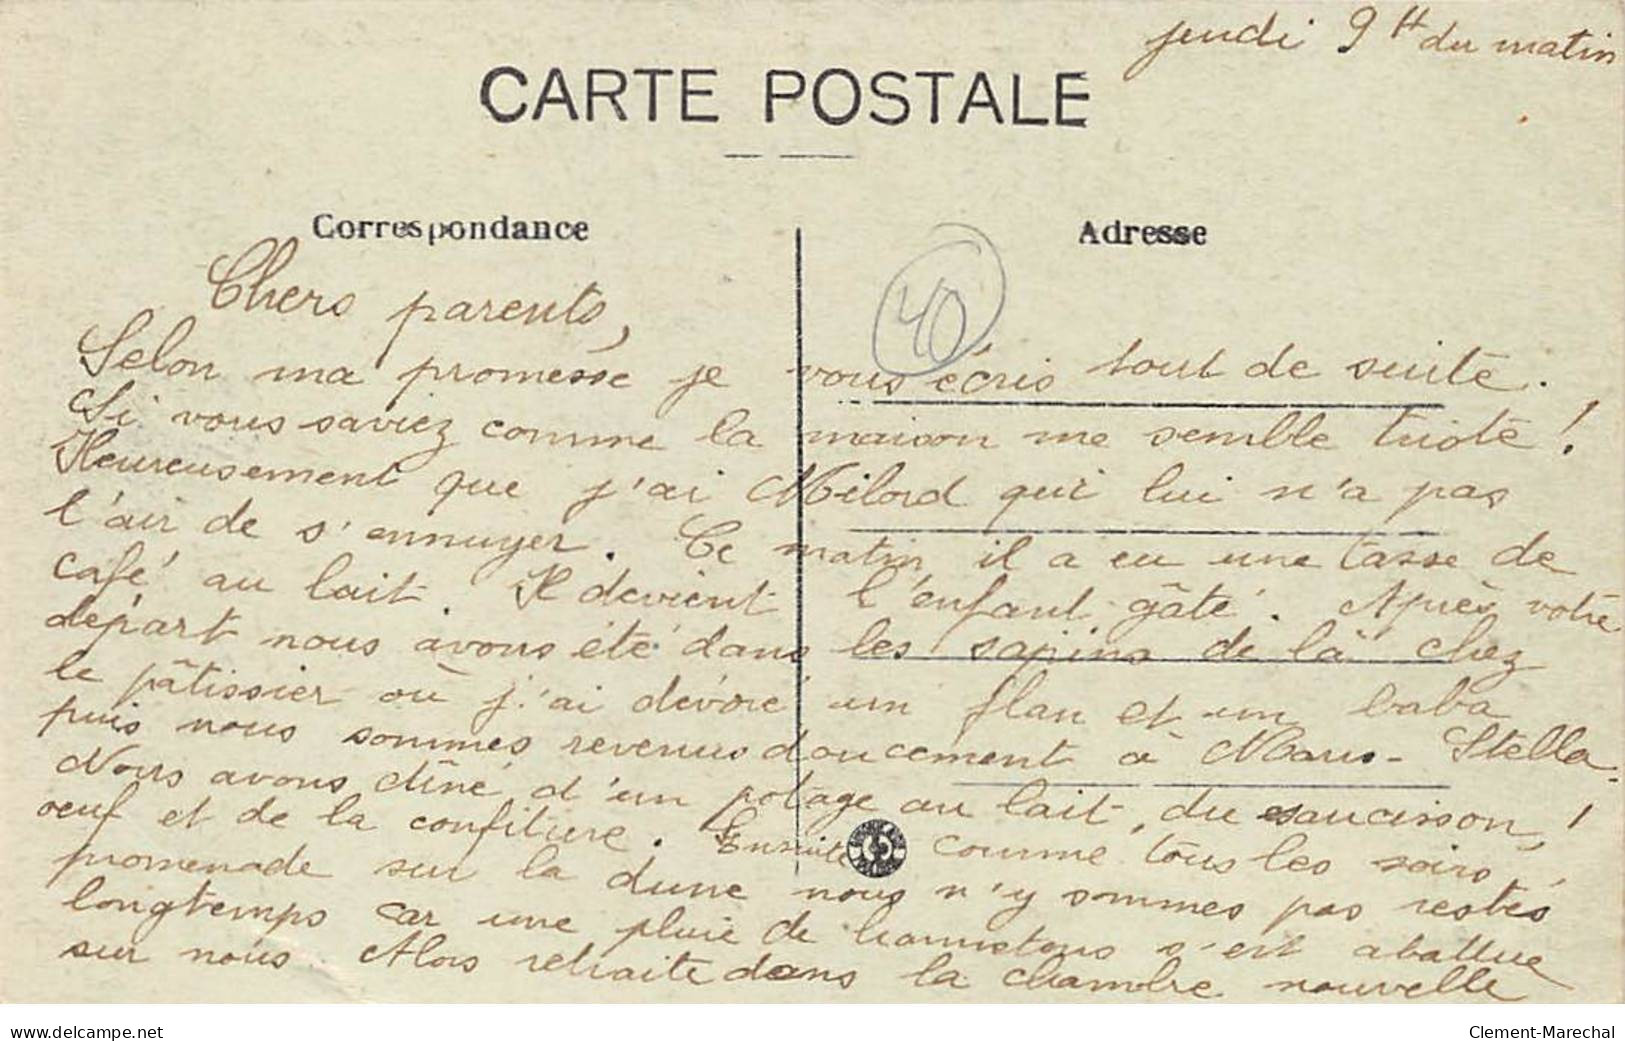 jeudi 9 H du matin
CARTE POSTALE
Correspondance
Adresse
40
Chers parents,
Selon ma promesse je vous écris tout de suite.
Si vous saviez comme la maison me semble triste !
Heureusement que j'ai Milord qui lui n'a pas
l'air de s'ennuyer. Ce matin il a eu une tasse de
café au lait. Il devient l'enfant gâté. Après votre
départ nous avons été dans les sapins de là chez
le pâtissier où j'ai dévoré un flan et un baba
puis nous sommes revenus doucement à Maris-Stella.
Nous avons dîné d'un potage au lait, du saucisson,
oeuf et de la confiture. Ensuite comme tous les soirs !
promenade sur la dune nous n'y sommes pas restés
longtemps car une pluie de hannetons s'est abattue
sur nous. Alors retraite dans la chambre nouvelle
www.delcampe.net
Clement-Marechal